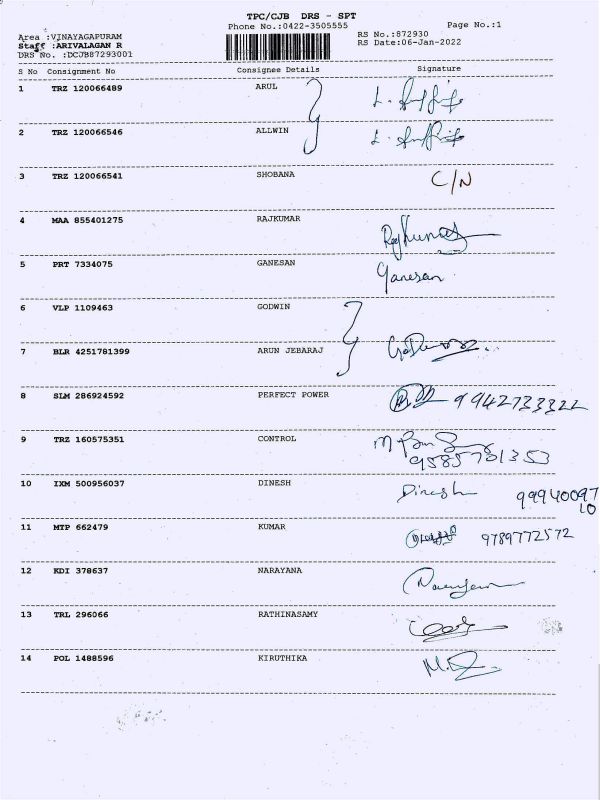 TPC/CJB DRS - SPT
Phone No.:0422-3505555 Page No.:1
Area :VINAYAGAPURAM RS No.:872930
Staff :ARIVALAGAN R RS Date:06-Jan-2022
DRS No. :DCJB87293001
S No Consignment No Consignee Details Signature
1 TRZ 120066489 ARUL
2 TRZ 120066546 ALLWIN
3 TRZ 120066541 SHOBANA C/N
4 MAA 855401275 RAJKUMAR Rajkumar
5 PRT 7334075 GANESAN Ganesan
6 VLP 1109463 GODWIN
7 BLR 4251781399 ARUN JEBARAJ
8 SLM 286924592 PERFECT POWER 9942733322
9 TRZ 160575351 CONTROL
9585781353
10 IXM 500956037 DINESH Dinesh 99940097
10
11 MTP 662479 KUMAR 9789772572
12 KDI 378637 NARAYANA
13 TRL 296066 RATHINASAMY
14 POL 1488596 KIRUTHIKA